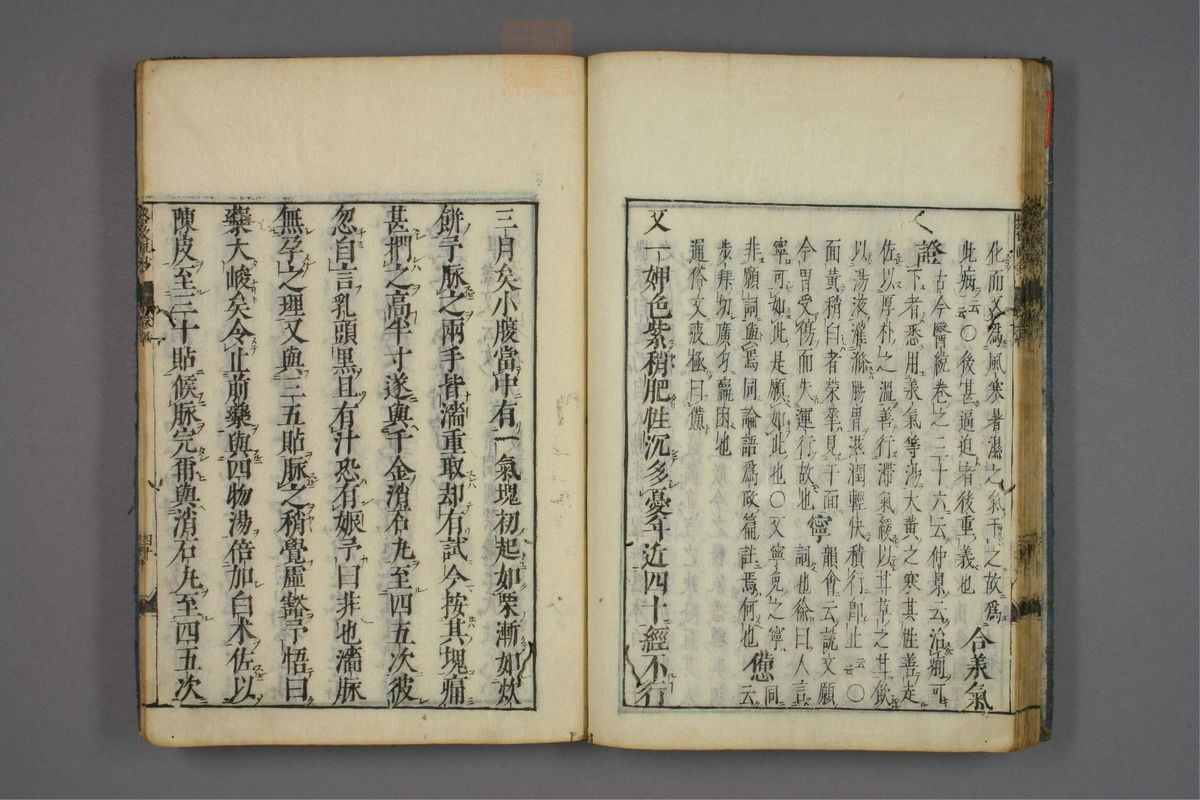 化而又爲風寒暑濕之氣干之故爲
此病云云〇後甚逼迫者後重義也 合義氣
證 古今醫統卷之二十六云仲景云治痢可
下者悉用義氣等湯大黄之寒其性善走
佐以厚朴之溫善行滯氣緩以甘草之甘飲
以湯液灌滌腸胃滋潤輕快積行即止云云〇
面黄稍白者榮拳見于面 寧 韻會云説文願
今胃受傷而失運行故也 詞也徐曰人言
寧可如此是願如此也〇又寧免之寧同
非願詞與焉同論語爲政篇註焉何也 憊 云
步拜切廣韵羸困也
通俗文疲極曰憊
又一婢色紫稍肥性沉多憂年近四十經不行
三月矣小腹當中有一氣塊初起如栗漸如炊
餅予脉之兩手皆濇重取却有試令按其塊痛
甚捫之高半寸遂與千金消石丸至四五次彼
忽自言乳頭黒且有汁恐有娠予曰非也濇脉
無孕之理又與三五貼脉之稍覺虛豁予悟曰
藥大峻矣令止前藥與四物湯倍加白术佐以
陳皮至三十貼候脉完再與消石丸至四五次